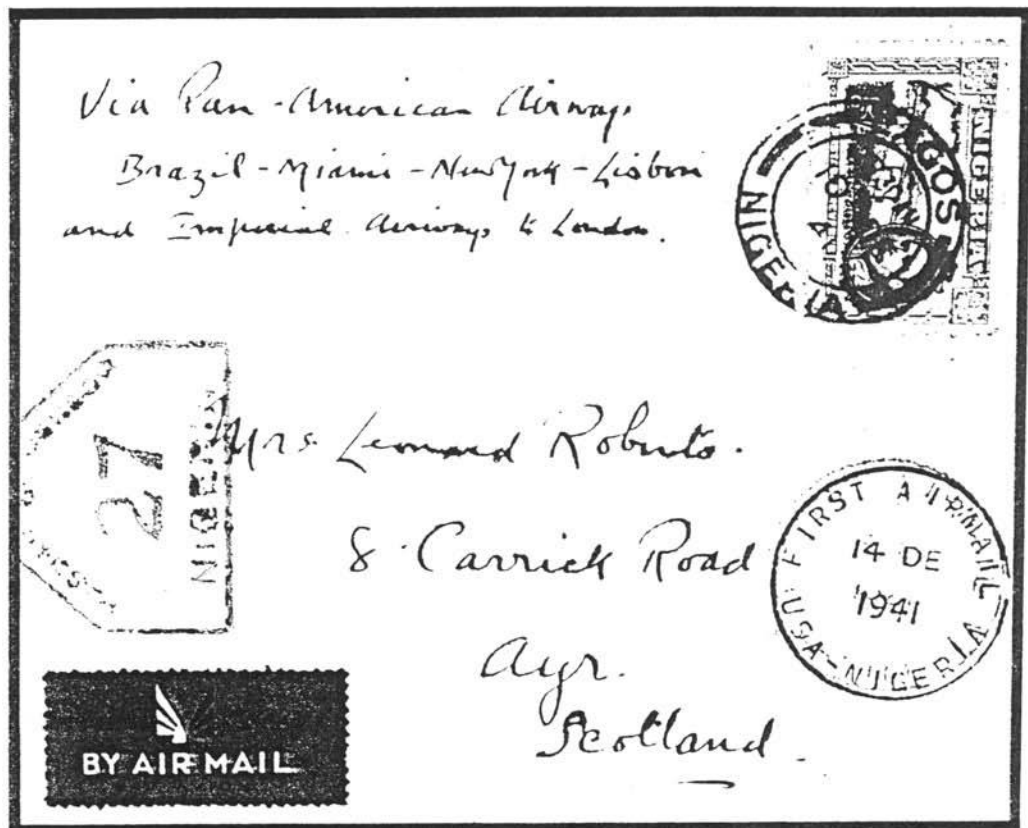 Via Pan-American Airways
Brazil - Miami - New York - Lisbon
and Imperial Airways to London.
NIGERIA
LAGOS
NIGERIA
27
NIGERIA
Mrs Leonard Roberts.
8 Carrick Road
Ayr.
Scotland.
FIRST AIRMAIL
14 DE
1941
USA-NIGERIA
BY AIR MAIL